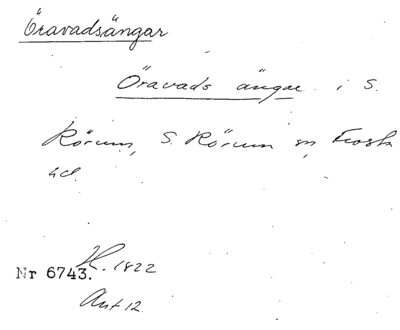 Öravadsängar
Öravads ängar i S.
Rörum, S. Rörum sn, Frosta
hd.
Nr 6743. H. 1822
Akt 12.